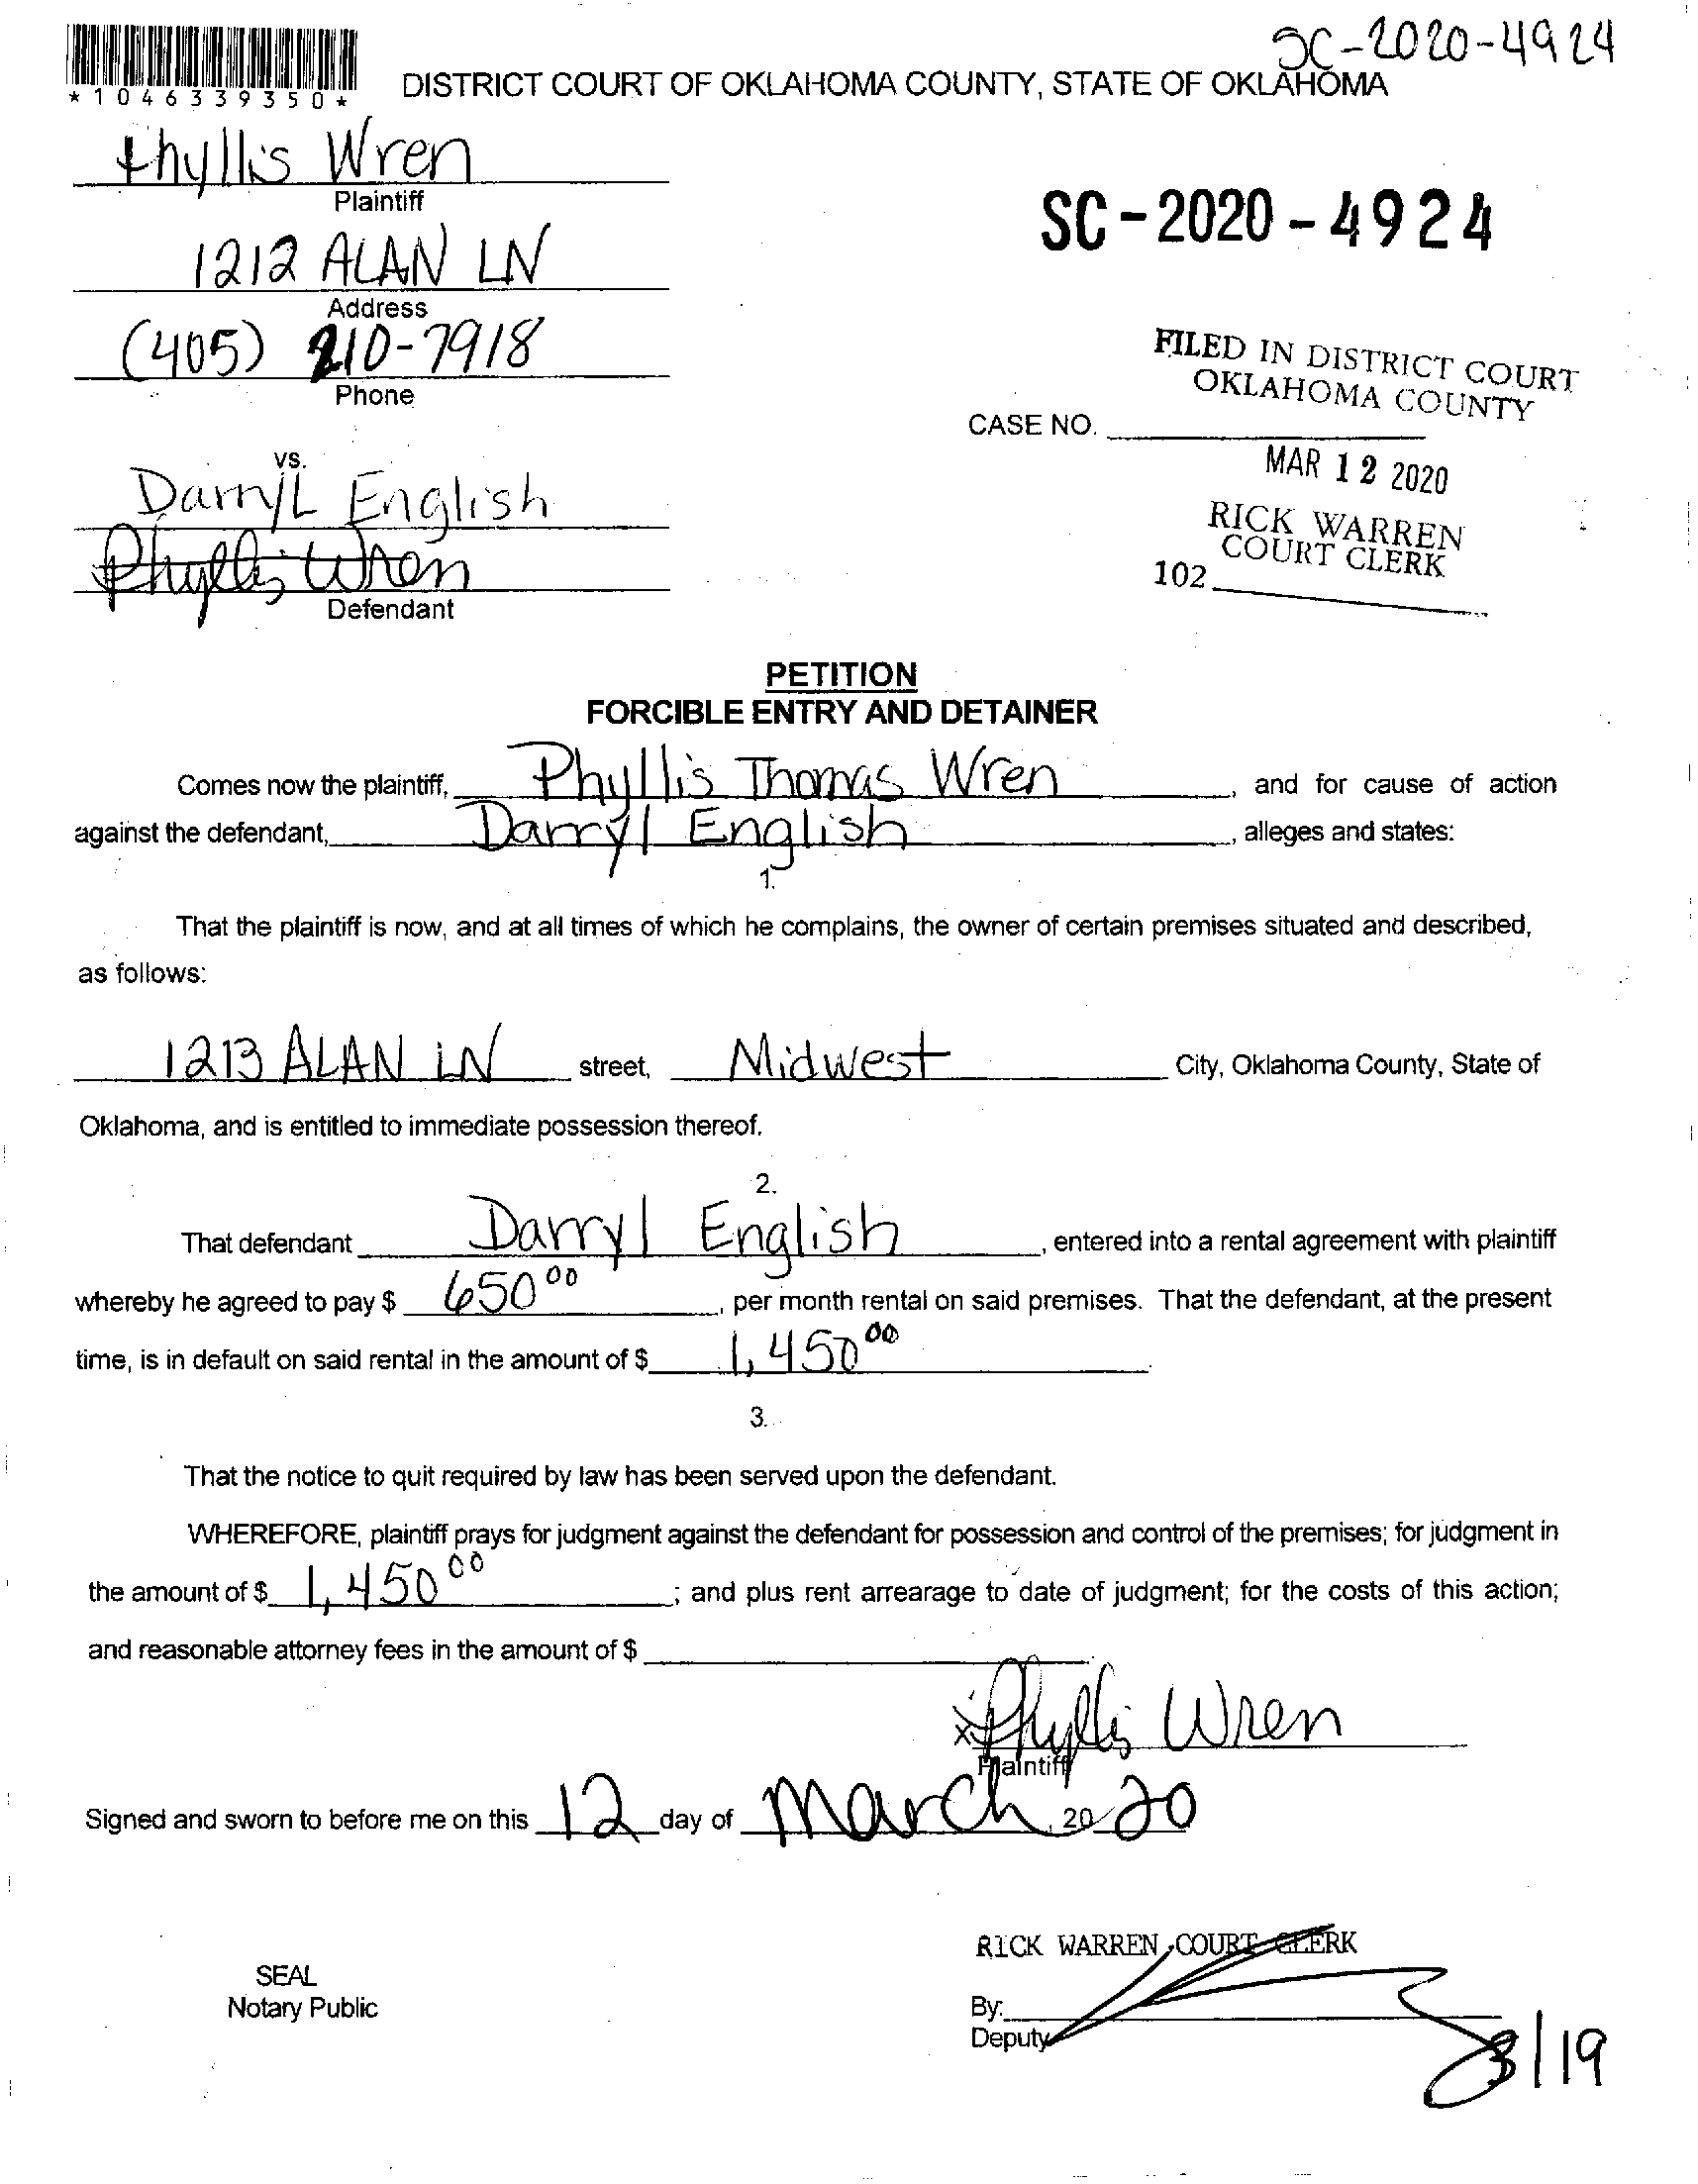 SC-2020-4924
*1046339350*
DISTRICT COURT OF OKLAHOMA COUNTY, STATE OF OKLAHOMA
Phyllis Wren
Plaintiff
SC-2020-4924
1212 ALAN LN
Address
(405) 210-7918
Phone
FILED IN DISTRICT COURT
OKLAHOMA COUNTY
CASE NO.
MAR 12 2020
vs.
DarryL English
RICK WARREN
COURT CLERK
102
Phyllis Wren
Defendant
PETITION
FORCIBLE ENTRY AND DETAINER
Comes now the plaintiff, Phyllis Thomas Wren, and for cause of action
against the defendant, Darryl English, alleges and states:
1.
That the plaintiff is now, and at all times of which he complains, the owner of certain premises situated and described,
as follows:
1213 ALAN LN street, Midwest City, Oklahoma County, State of
Oklahoma, and is entitled to immediate possession thereof.
2.
That defendant Darryl English, entered into a rental agreement with plaintiff
whereby he agreed to pay $ 650 00, per month rental on said premises. That the defendant, at the present
time, is in default on said rental in the amount of $ 1,450 00.
3.
That the notice to quit required by law has been served upon the defendant.
WHEREFORE, plaintiff prays for judgment against the defendant for possession and control of the premises; for judgment in
the amount of $ 1,450 00; and plus rent arrearage to date of judgment; for the costs of this action;
and reasonable attorney fees in the amount of $
x Phyllis Wren
Plaintiff
Signed and sworn to before me on this 12 day of March, 20 20
RICK WARREN, COURT CLERK
SEAL
Notary Public
By:
Deputy
3/19